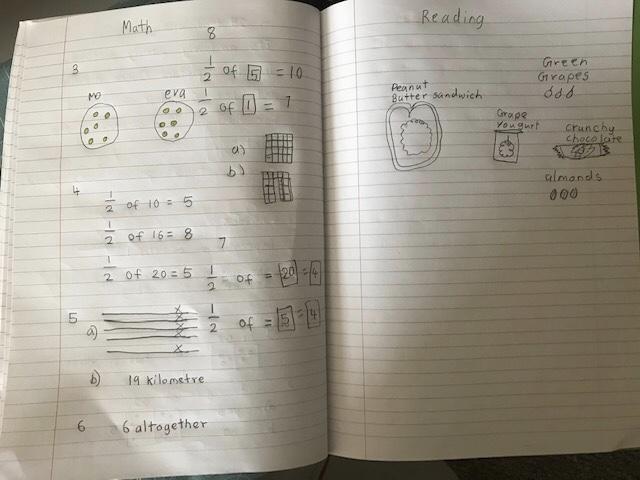 Math
8
3
1/2 of 5 = 10
mo
eva
1/2 of 1 = 7
a)
b)
4
1/2 of 10 = 5
1/2 of 16 = 8
7
1/2 of 20 = 5
1/2 of = 20 = 4
5
a)
x
x
x
x
x
1/2 of = 5 = 4
b) 19 kilometre
6 6 altogether
Reading
Green
Grapes
Peanut
Butter sandwich
Grape
Yougurt
crunchy
chocolate
almonds